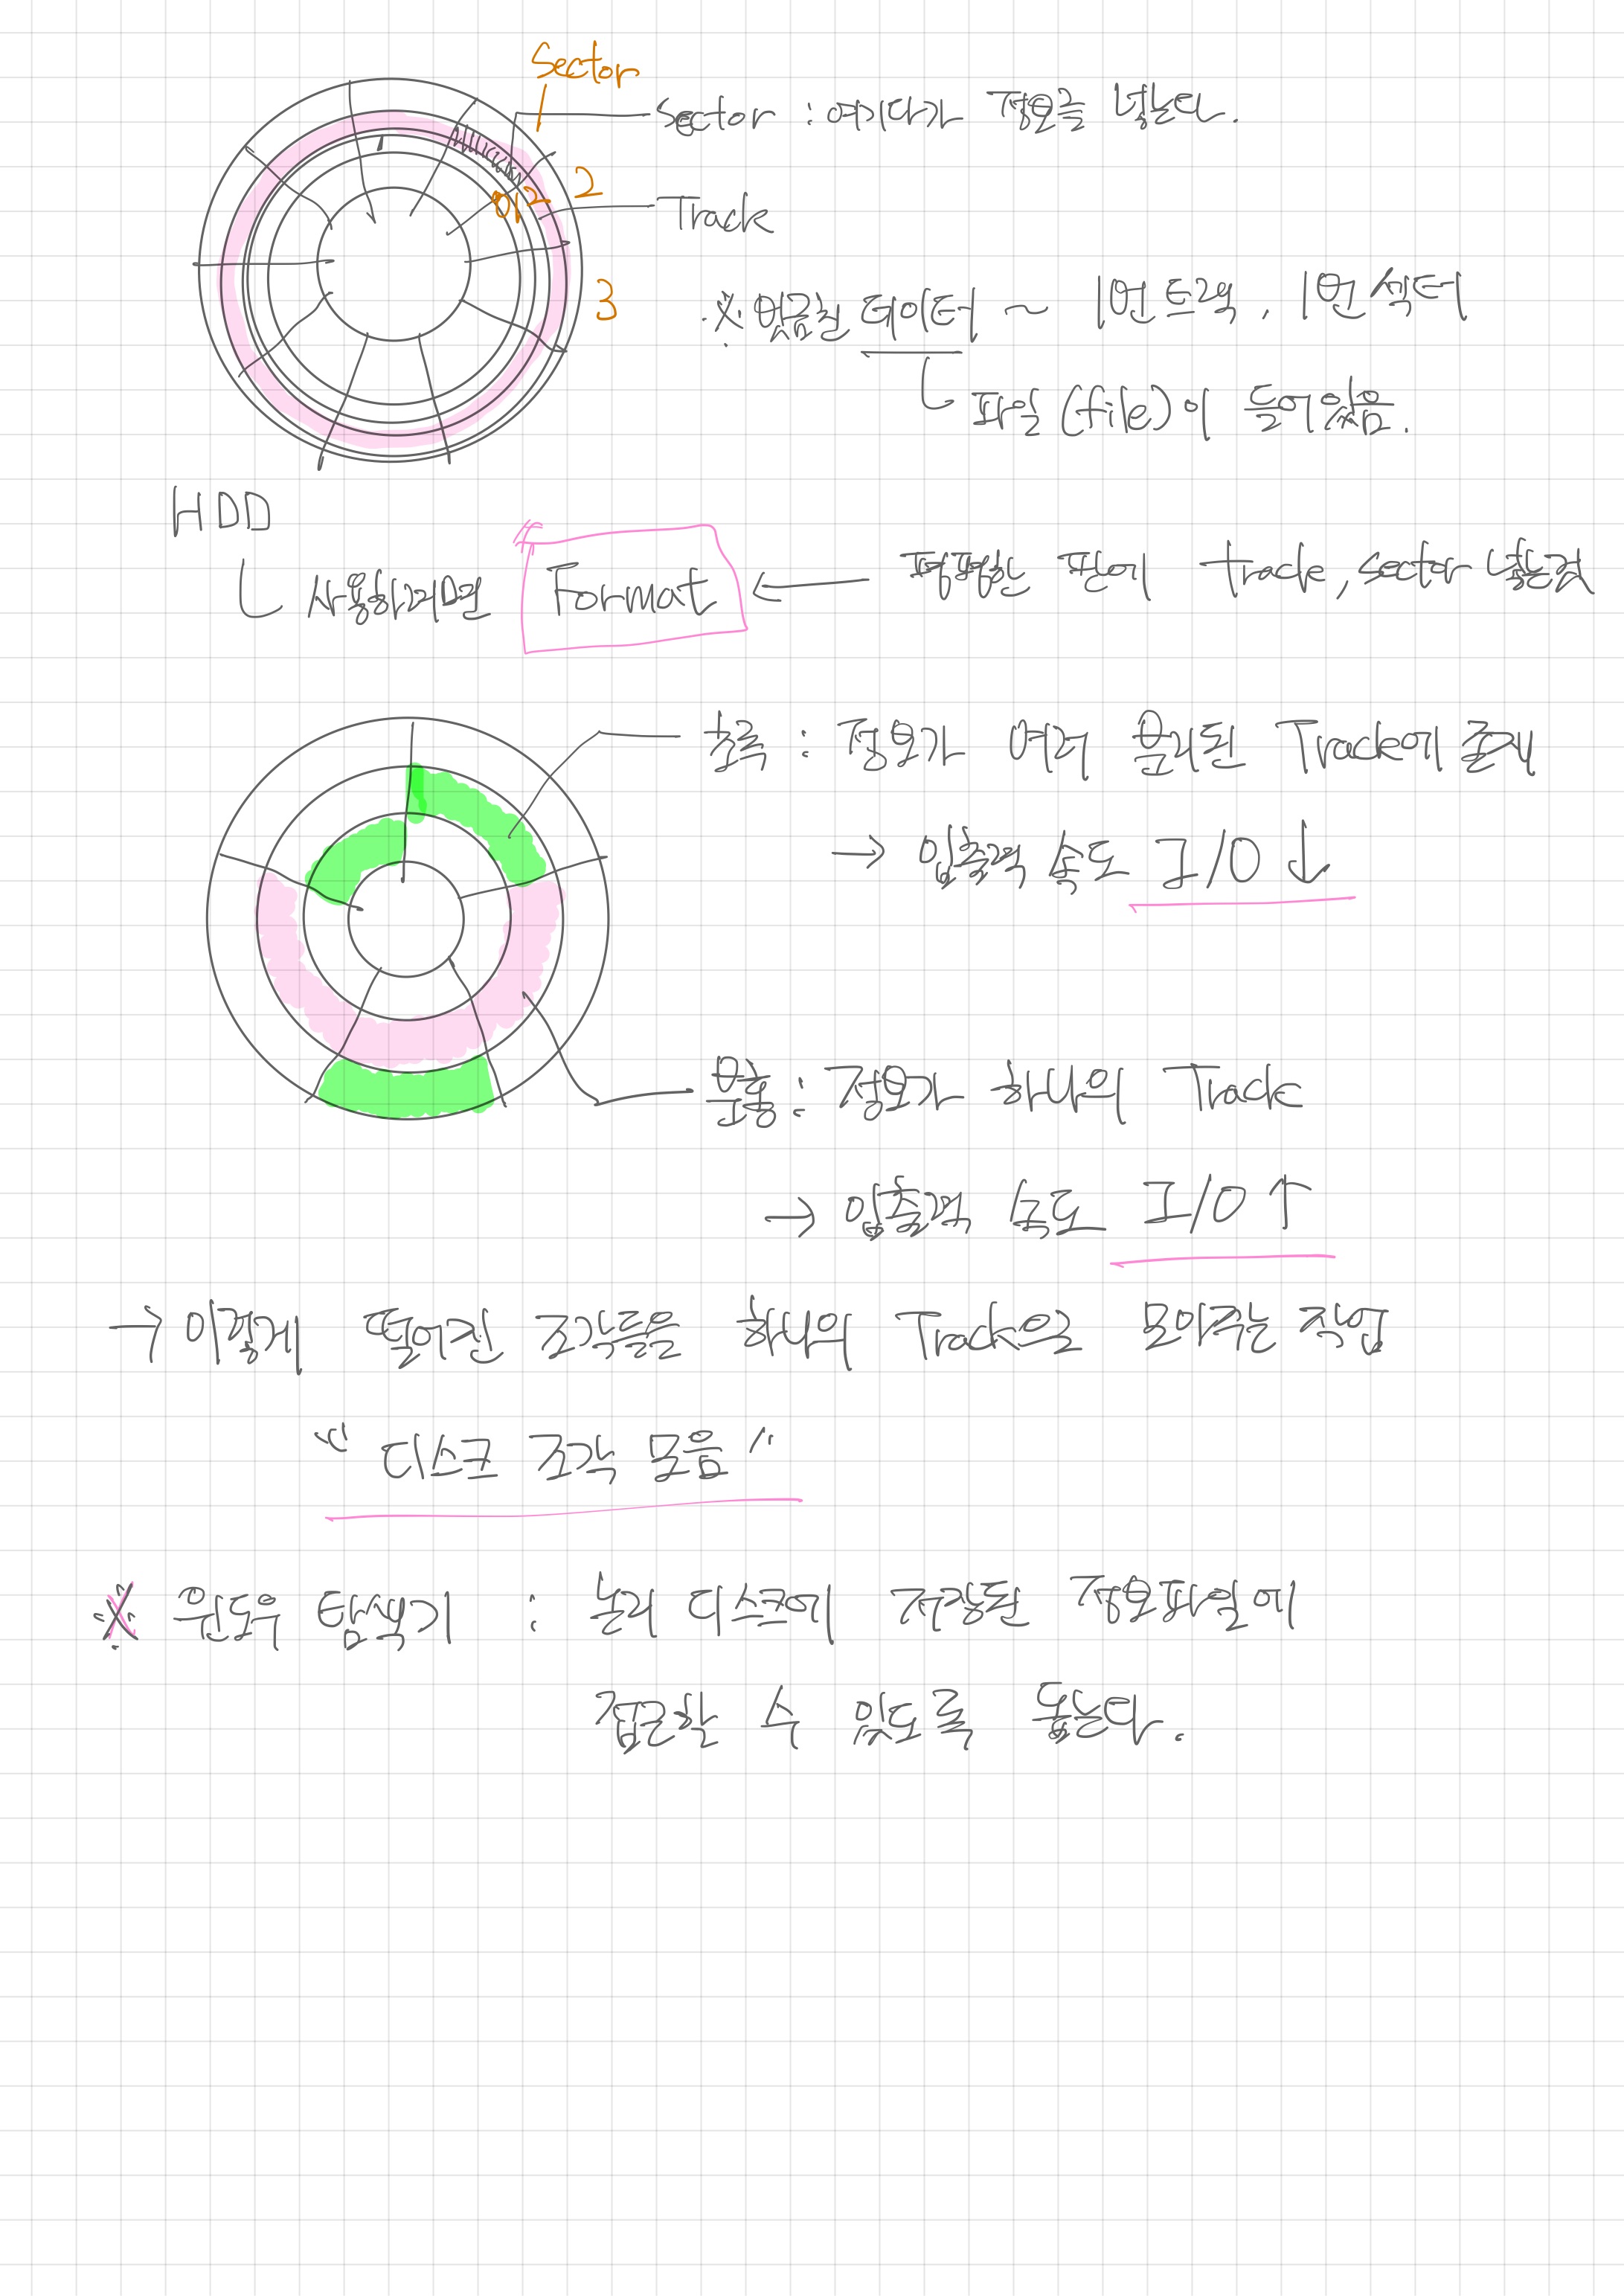 Sector
Sector : 여기다가 정보를 넣는다.
1
012
2
Track
3
※ 데이터 ~ 1번 트랙, 1번 섹터
파일 (file)이 들어있음.
HDD
사용하려면 Format ← 평평한 판에 track, sector 넣는것
초록 : 정보가 여러 분리된 Track에 존재
→ 입출력 속도 I/O ↓
분홍 : 정보가 하나의 Track
→ 입출력 속도 I/O ↑
→ 이렇게 떨어진 조각들을 하나의 Track으로 모아주는 작업
" 디스크 조각 모음 "
※ 윈도우 탐색기 : 논리 디스크에 저장된 정보파일에
접근할 수 있도록 돕는다.